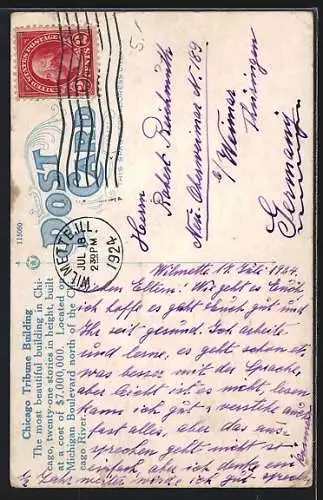 POST CARD
113060
Chicago Tribune Building
The most beautiful building in Chi-
cago, twenty-one stories in height, built
at a cost of $7,000,000. Located on
Michigan Boulevard north of the Chi-
cago River.
WILMETTE, ILL.
JUL 18
2 30 PM
1924
Herrn
Robert
Nieder Oberweimar N. 189
b/ Weimar
Thüringen
Germany
Wilmette 17. Juli 1924.
Lieben Eltern! Wie geht es Euch
ich hoffe es geht Euch gut und
Ihr seit gesund. Ich arbeite
und lerne, es geht schon et-
was besser mit der Sprache,
aber leicht ist es nicht, lesen
kann ich gut - verstehe auch
fast alles, aber das aus-
sprechen geht nicht so
einfach aber ich denke ein
Jahr weiter werde ich gut